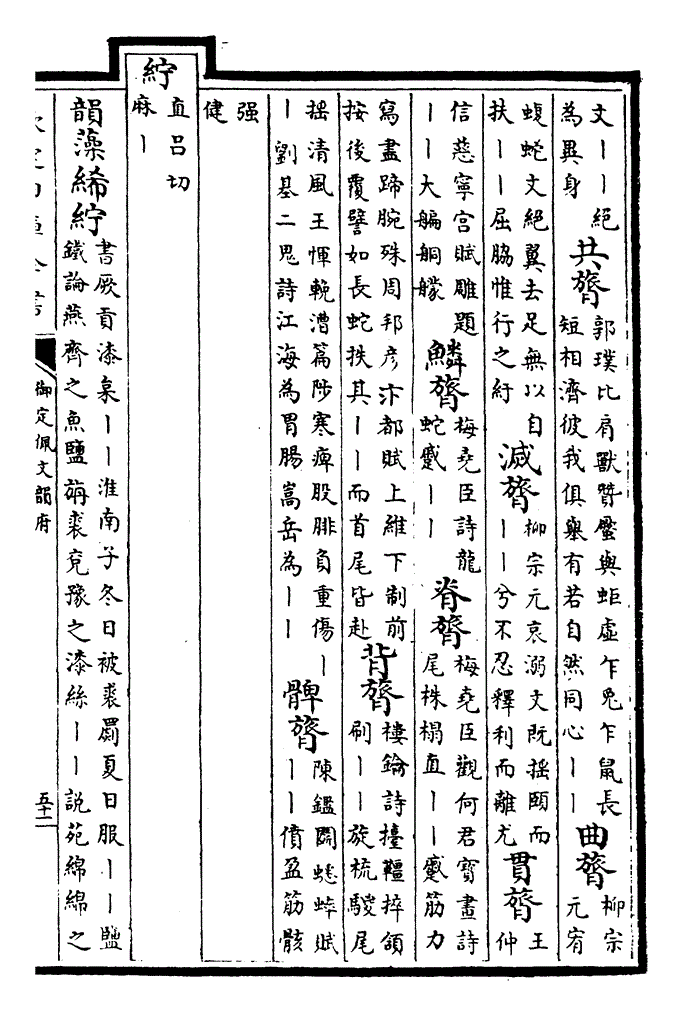 文丨丨絕
為異身
共膂
郭璞比肩獸贊蹷與蚷虛乍兎乍鼠長
短相濟彼我俱舉有若自然同心丨丨
曲膂
柳宗
元宥
蝮蛇文絕翼去足無以自
扶丨丨屈脇惟行之紆
減膂
柳宗元哀溺文既揺頤而
丨丨兮不忍釋利而離尤
貫膂
王
仲
信慈寧宮賦雕題
丨丨大艑艒艨
鱗膂
梅堯臣詩龍
蛇蹙丨丨
脊膂
梅堯臣觀何君寶畫詩
尾株榻直丨丨蹙筋力
寫盡蹄腕殊周邦彦汴都賦上維下制前
按後覆譬如長蛇抶其丨丨而首尾皆赴
背膂
樓鑰詩擡韁捽頷
刷丨丨旋梳騣尾
揺清風王惲輓漕篇陟寒痺股腓負重傷丨
丨劉基二鬼詩江海為胃腸嵩岳為丨丨
髀膂
陳鑑鬬蟋蟀賦
丨丨僨盈筋骸
强
健
紵
直呂切
麻丨
韻藻
絺紵
書厥貢漆枲丨丨淮南子冬日被裘罽夏日服丨丨鹽
鐵論燕齊之魚鹽旃裘兗豫之漆絲丨丨說苑綿綿之
御定佩文韻府
五十一